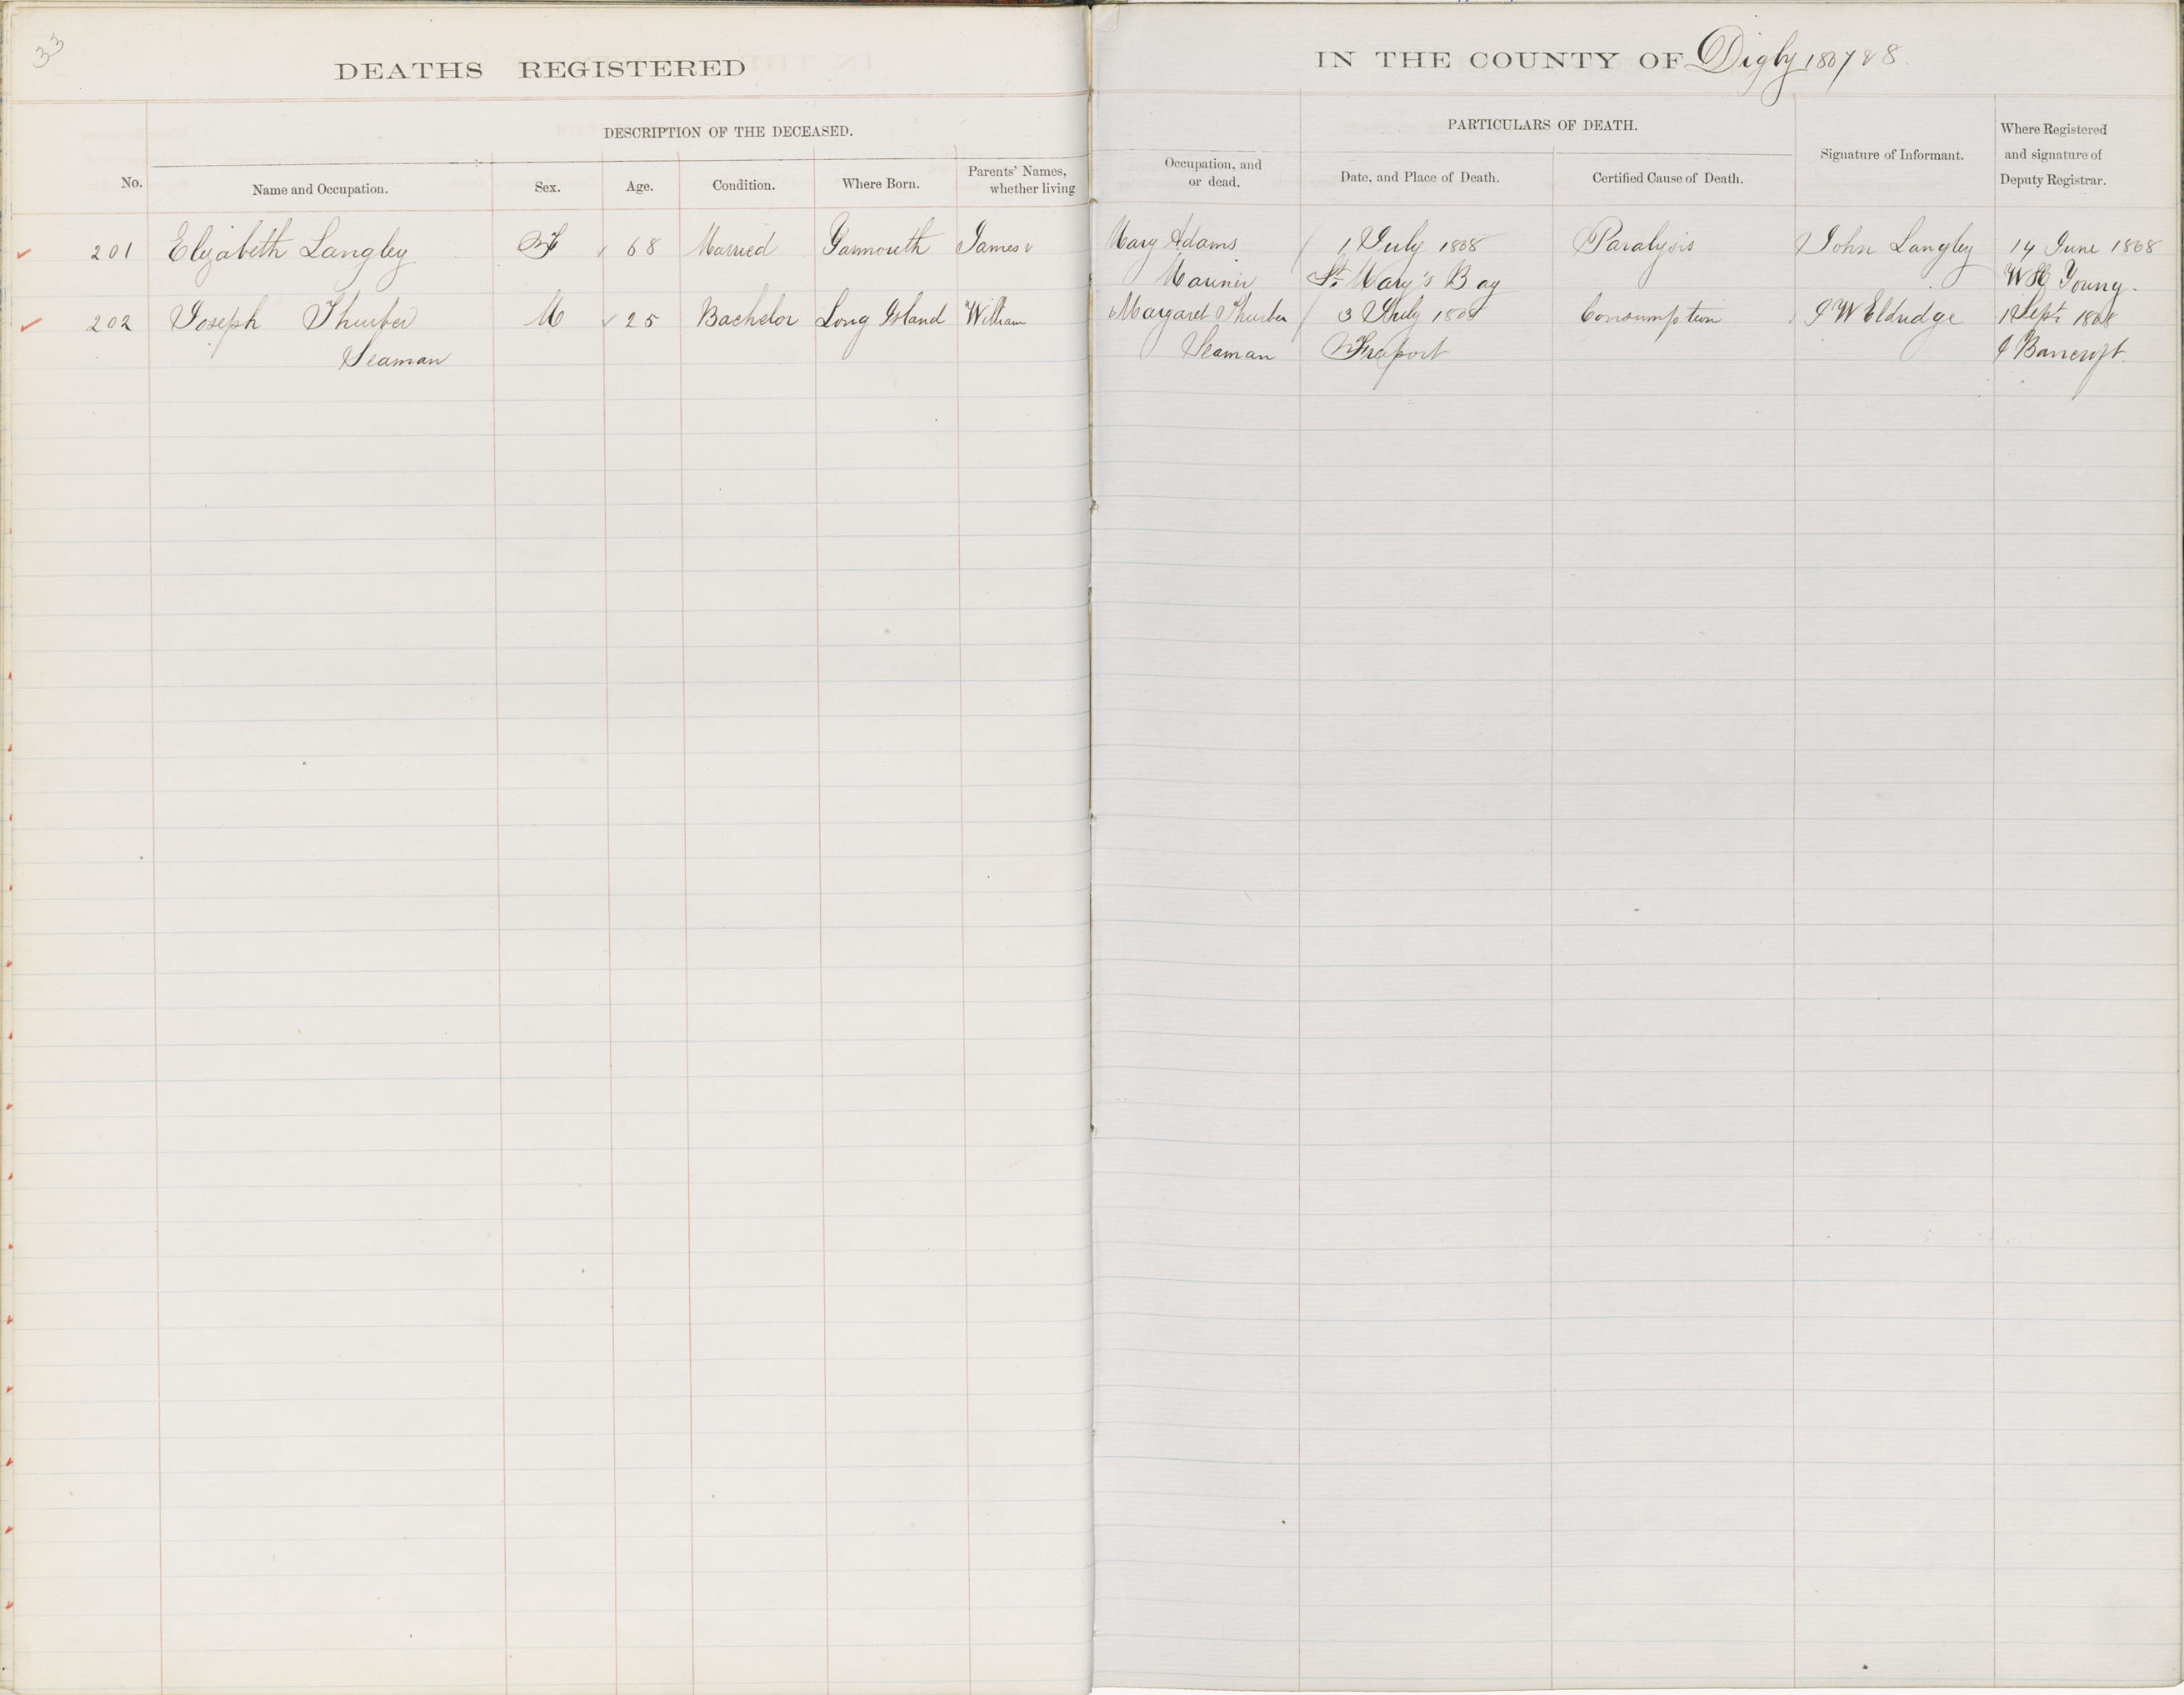 33
DEATHS REGISTERED
IN THE COUNTY OF Digby 1867 & 8
DESCRIPTION OF THE DECEASED.
PARTICULARS OF DEATH.
No.
Name and Occupation.
Sex.
Age.
Condition.
Where Born.
Parents' Names, whether living
Occupation, and or dead.
Date, and Place of Death.
Certified Cause of Death.
Signature of Informant.
Where Registered and signature of Deputy Registrar.
201 Elizabeth Langley F 68 Married Yarmouth James & Mary Adams 1 July 1868 Paralysis John Langley 14 June 1868
Mariner St. Mary's Bay W H Young.
202 Joseph Thurber M 25 Bachelor Long Island William Margaret Thurber 3 July 1868 Consumption J W Eldridge 1 Sept 1868
Seaman Seaman Freeport J Bancroft.